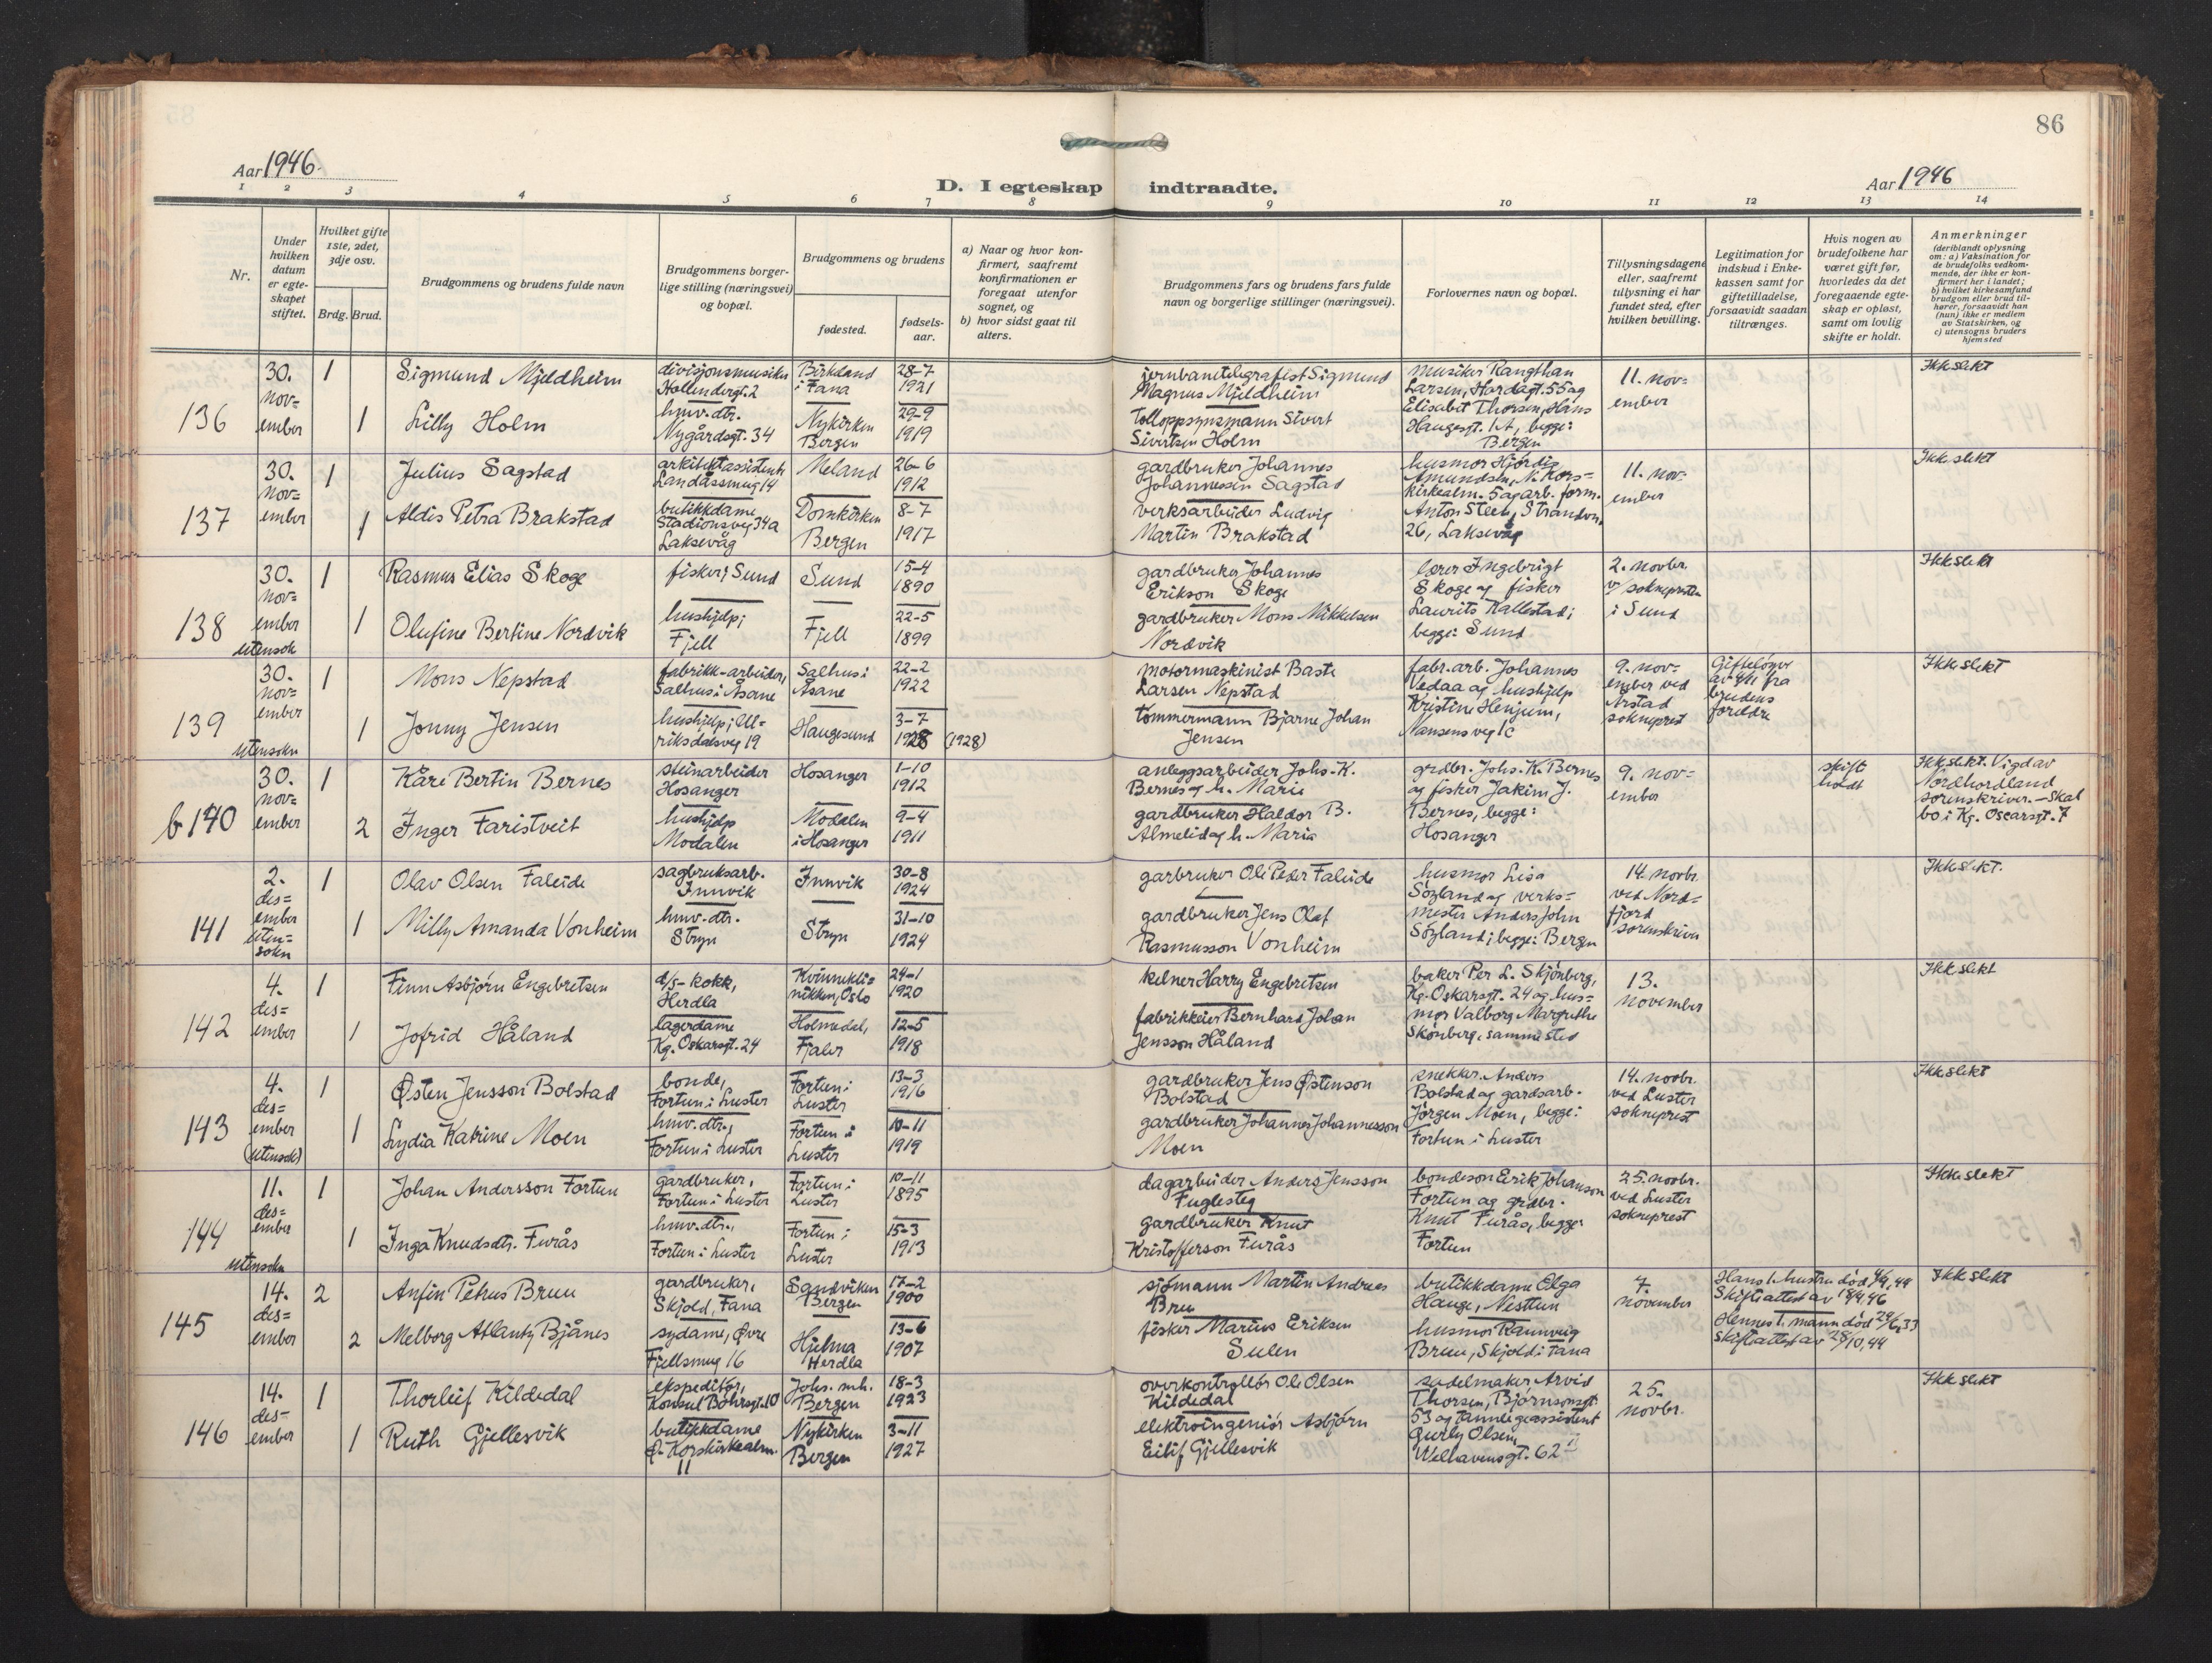 86
Aar 1946.
Aar 1946
D. I egteskap indtraadte.
1 2 3 4 5 6 7 8 9 10 11 12 13 14
Nr.
Under hvilken datum er egte-skapet stiftet.
Hvilket gifte 1ste, 2det, 3dje osv.
Brdg. Brud.
Brudgommens og brudens fulde navn
Brudgommens borger-lige stilling (næringsvei) og bopæl.
Brudgommens og brudens
fødested.
fødsels-aar.
a) Naar og hvor kon-firmert, saafremt konfirmationen er foregaat utenfor sognet, og
b) hvor sidst gaat til alters.
Brudgommens fars og brudens fars fulde navn og borgerlige stillinger (næringsvei).
Forlovernes navn og bopæl.
Tillysningsdagene eller, saafremt tillysning ei har fundet sted, efter hvilken bevilling.
Legitimation for indskud i Enke-kassen samt for giftetilladelse, forsaavidt saadan tiltrænges.
Hvis nogen av brudefolkene har været gift før, hvorledes da det foregaaende egte-skap er opløst, samt om lovlig skifte er holdt.
Anmerkninger
(deriblandt oplysning om: a) Vaksination for de brudefolks vedkom-mende, der ikke er kon-firmert her i landet;
b) hvilket kirkesamfund brudgom eller brud til-hører, forsaavidt han (hun) ikke er medlem av Statskirken, og
c) utensogns bruders hjemsted
136
30. nov=ember
1 Sigmund Mjeldheim
divisjonsmusiker Hollendergt. 2
Birkeland i Fana
28-7 1921
jernbanetelegrafist Sigmund Magnus Mjeldheim
musiker Rangthan Larsen, Hardagt. 55 og Elisabet Thorsen, Hans Haugesgt. 1A, begge: Bergen
11. nov=ember
Ikke slekt
1 Lilly Holm
hmv. dtr. Nygårdsgt. 34
Nykirken Bergen
29-9 1919
Tolloppsynsmann Sivert Sivertsen Holm
137
30. nov=ember
1 Julius Sagstad
arkitektassistent Landåssmug 14
Meland
26-6 1912
gardbruker Johannes Johannessen Sagstad
husmor Hjørdis Amundsen, N. Kors=kirkealm. 5 og arb. form. Anton Steen, Strandvn. 26, Laksevåg
11. nov=ember
Ikke slekt
1 Aldis Petra Brakstad
butikkdame Stadionsveg 34a Laksevåg
Domkirken Bergen
8-7 1917
verksarbeider Ludvig Martin Brakstad
138
30. nov=ember utensok
1 Rasmus Elias Skoge
fisker; Sund
Sund
15-4 1890
gardbruker Johannes Erikson Skoge
lærer Ingebrigt Skoge og fisker Laurits Kallestad; begge: Sund
2. novbr. v/ sokneprsten i Sund
Ikke slekt
1 Olufine Bertine Nordvik
hushjelp; Fjell
Fjell
22-5 1899
gardbruker Mons Mikkelsen Nordvik
139
30. nov=ember utensokn
1 Mons Nepstad
fabrikk-arbeider, Salhus i Åsane
Salhus i Åsane
22-2 1922
motormaskinist Baste Larsen Nepstad
fabr. arb. Johannes Vedaa og hushjelp Kristine Henjum, Nansens veg 1c
9. nov=ember ved Årstad sokneprest
Gifteløyve av 4/11 fra brudens foreldre
Ikke slekt
1 Jonny Jensen
hushjelp; Ull=riksdalsveg 19
Haugesund
3-7 1928 (1928)
tømmermann Bjarne Johan Jensen
b 140
30. nov=ember
1 Kåre Bertin Bernes
steinarbeider Hosanger
Hosanger
1-10 1912
anleggsarbeider Johs. K. Bernes og h. Marie
grdbr. Johs. K. Bernes og fisker Jakim J. Bernes, begge: Hosanger
9. nov=ember
skift holdt
Ikke slekt. Vigd av Nordhordland sorenskriver. - Skal bo i Kg. Oscarsgt. 7
2 Inger Faristveit
hushjelp Modalen
Modalen i Hosanger
9-4 1911
gardbruker Haldor B. Almelid og h. Maria
141
2. des=ember uten=sokn
1 Olav Olsen Faleide
sagbruksarb. Innvik
Innvik
30-8 1924
garbruker Ole Peder Faleide
husmor Lisa Søgland og verks=mester Anders John Søgland; begge: Bergen
14. novbr. ved Nord=fjord sorenskriver
Ikke slekt.
1 Milly Amanda Vonheim
hmv. dtr. Stryn
Stryn
31-10 1924
gardbruker Jens Olaf Rasmusson Vonheim
142
4. des=ember
1 Finn Asbjørn Engebretsen
d/s-kokk, Herdla
Kvinnekli=nikken, Oslo
24-1 1920
kelner Harry Engebretsen
baker Per L. Skjønberg, Kg. Oskarsgt. 24 og hus=mor Valborg Margrethe Skønberg, samme sted
13. november
Ikke slekt
1 Jofrid Håland
lagerdame Kg. Oskarsgt. 24
Holmedal, Fjaler
12-5 1918
fabrikkeier Bernhard Johan Jensson Håland
143
4. des=ember (utensok)
1 Østen Jensson Bolstad
bonde, Fortun i Luster
Fortun i Luster
13-3 1916
gardbruker Jens Østenson Bolstad
snekker. Anders Bolstad og gardsarb. Jørgen Moen, begge: Fortun i Luster
14. novbr. ved Luster sokneprest
Ikke slekt
1 Lydia Katrine Moen
hmv. dtr., Fortun i Luster
Fortun i Luster
10-11 1919
gardbruker Johannes Johannesson Moen
144
11. des=ember utensokn
1 Johan Andersson Fortun
gardbruker, Fortun i Luster
Fortun i Luster
10-11 1895
dagarbeider Anders Jensson Fuglesteg
bondeson Erik Johanson Fortun og grdbr. Knut Furås, begge: Fortun
25. novbr. ved Luster sokneprest
Ikke slekt
1 Inga Knudsdtr. Furås
hmv. dtr., Fortun i Luster
Fortun i Luster
15-3 1913
gardbruker Knut Kristofferson Furås
145
14. des=ember
2 Anfin Petrus Bruu
gardbruker, Skjold, Fana
Sandviken Bergen
17-2 1900
sjømann Martin Andreas Bru
butikkdame Olga Hauge, Nesttun
husmor Rannveig Bruu, Skjold i Fana
7. november
Hans 1. hustru død 4/9, 44 Skifteattest av 18/9 46
Hennes 1. mann død 29/6, 33 skifteattest av 28/10, 44
Ikke slekt
2 Melborg Atlanty Bjånes
sydame, Øvre Fjellsmug 16
Hjelma Herdla
13-6 1907
fisker Marius Eriksen Sulen
146
14. des=ember
1 Thorleif Kildedal
ekspeditør, Konsul Børhsgt. 10
Johs. mh. Bergen
18-3 1923
overkontrollør Ole Olsen Kildedal
sadelmaker Arvid Thorsen, Bjørnsonsgt. 53 og tannlegeassistent Gurly Olsen, Welhavensgt. 62
25. novbr.
Ikke slekt
1 Ruth Gjellesvik
butikkdame Ø. Korskirkealm. 11
Nykirken Bergen
3-11 1927
elektroingeniør Asbjørn Eilif Gjellesvik